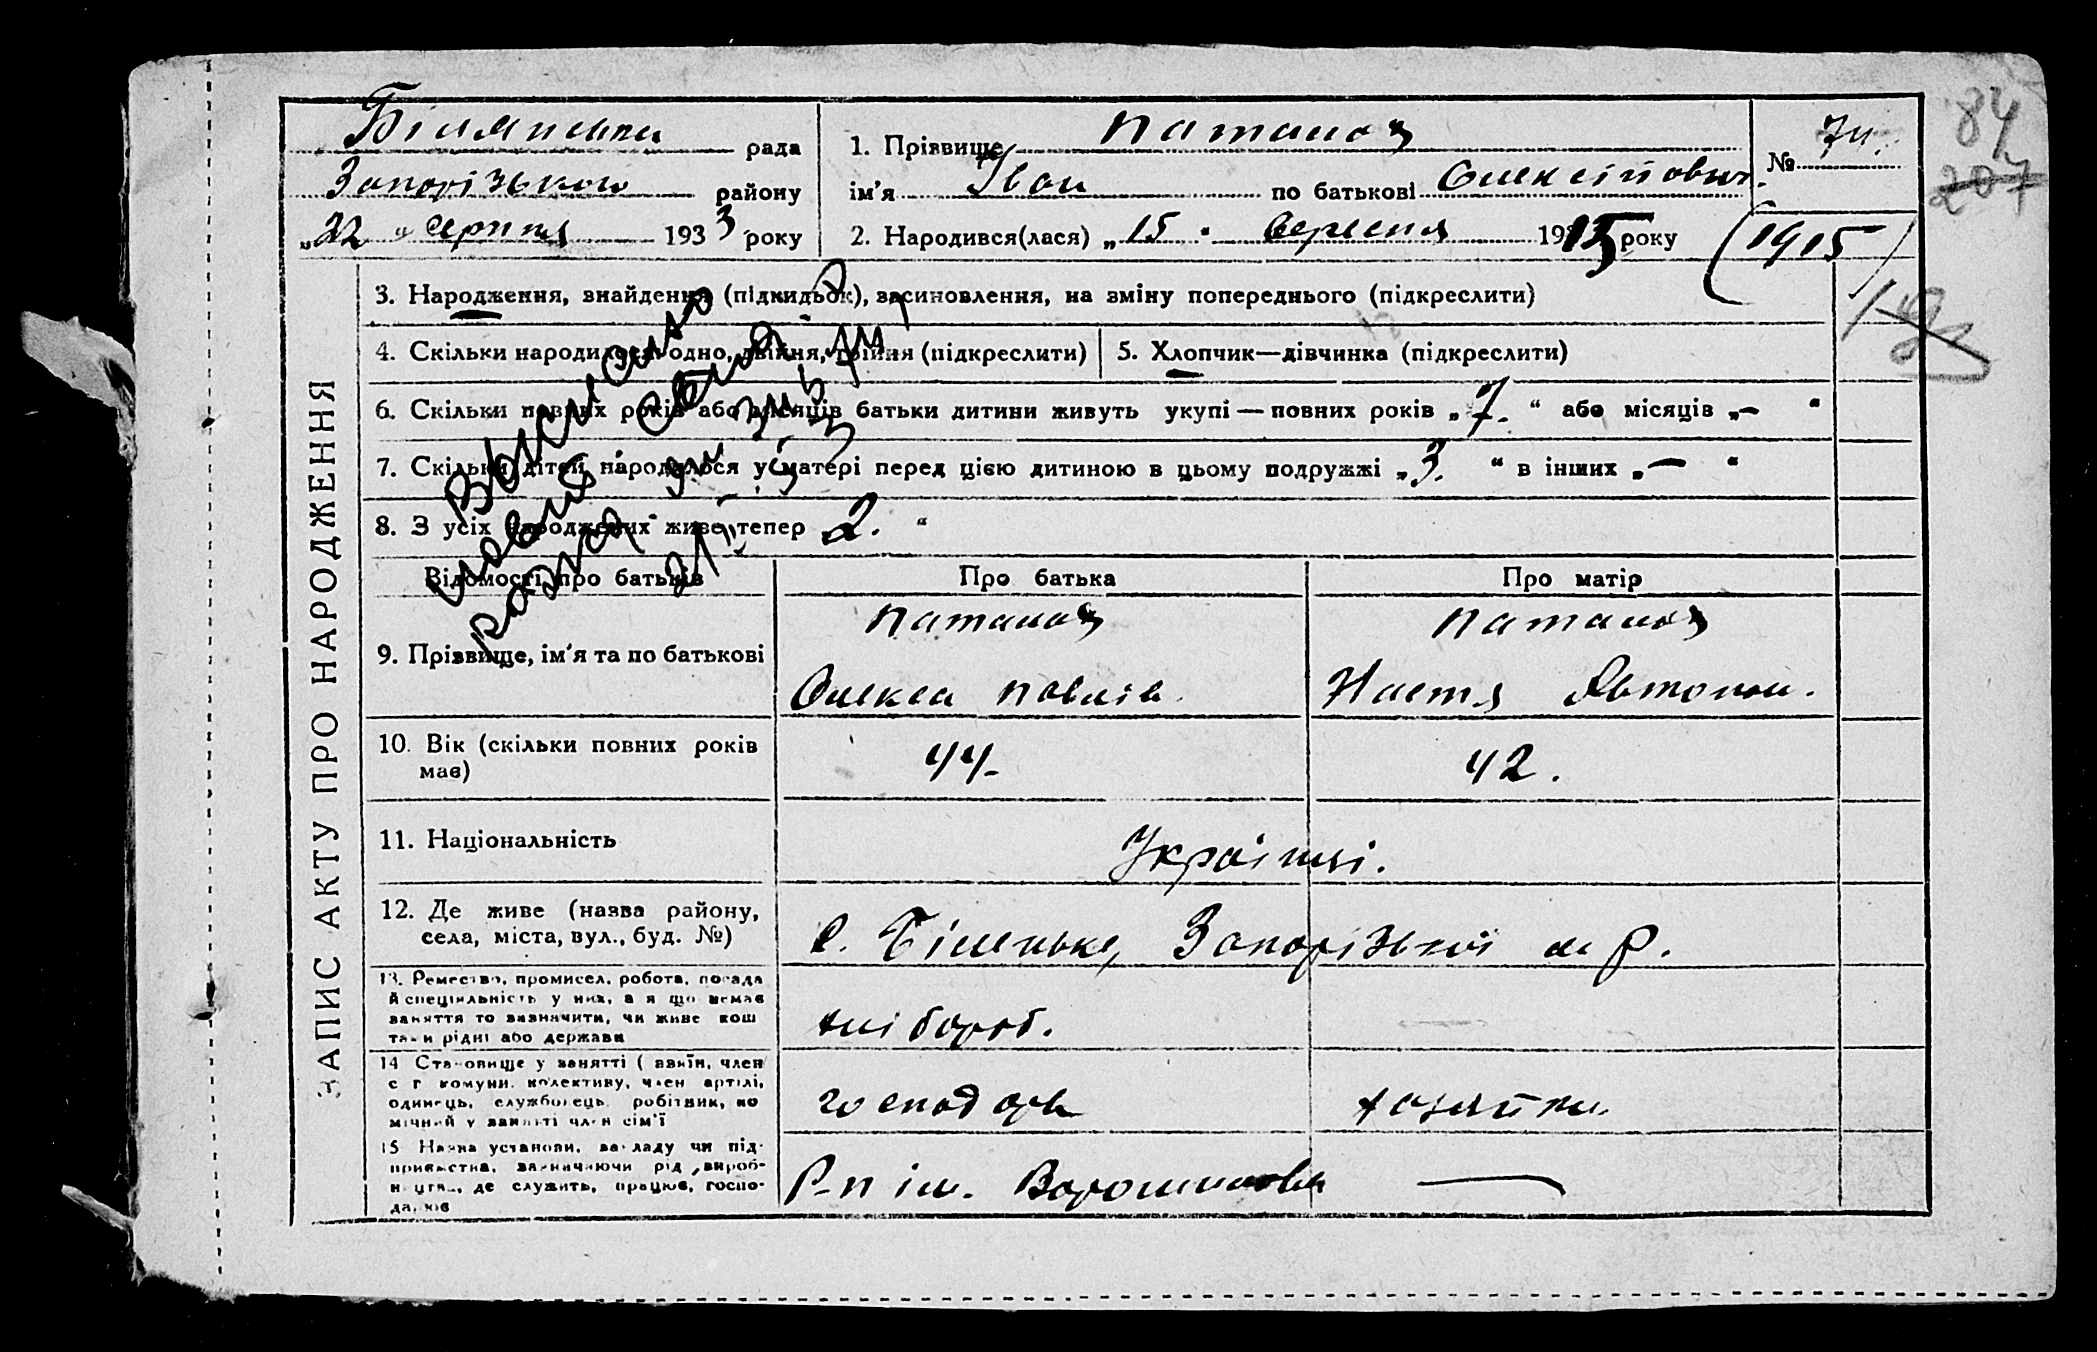 Білянська рада
Запорізького району
„22“ серпня 1933 року
1. Прізвище Паталах
ім'я Іван по батькові Олексійович
2. Народився(лася) „15“ вересня 1915 року
№ 74.
(1915)
84
207
ЗАПИС АКТУ ПРО НАРОДЖЕННЯ
3. Народження, знайдення (підкидьок), засиновлення, на зміну попереднього (підкреслити)
4. Скільки народилося: одно, двійня, трійня (підкреслити)
5. Хлопчик—дівчинка (підкреслити)
6. Скільки повних років або місяців батьки дитини живуть укупі — повних років „7.“ або місяців „—“
7. Скільки дітей народилося у матері перед цією дитиною в цьому подружжі „3.“ в інших „—“
8. З усіх народжених живе тепер 2. “
Відомості про батьків
Про батька
Про матір
9. Прізвище, ім'я та по батькові
Паталах
Олекса Павлів.
Паталах
Настя Автоном.
10. Вік (скільки повних років має)
44.
42.
11. Національність
Українці.
12. Де живе (назва району, села, міста, вул., буд. №)
с. Біленьке, Запорізької м р.
13. Ремество, промисел, робота, посада
й спеціяльність у них, а якщо немає
заняття то визначити, чи живе кош
там рідні або держави
хлібороб.
14 Становище у занятті (
член
с г комуни, колективу, член артілі,
одинець, службовець, робітник, по
мічний у занятті член сім'ї
господарь
хазяйка
15 Назва установи, закладу чи під-
приємства, зазначаючи рід вироб-
ництва, де служить, працює, госпо-
дарює
Р-п ім. Ворошилова
Выписано